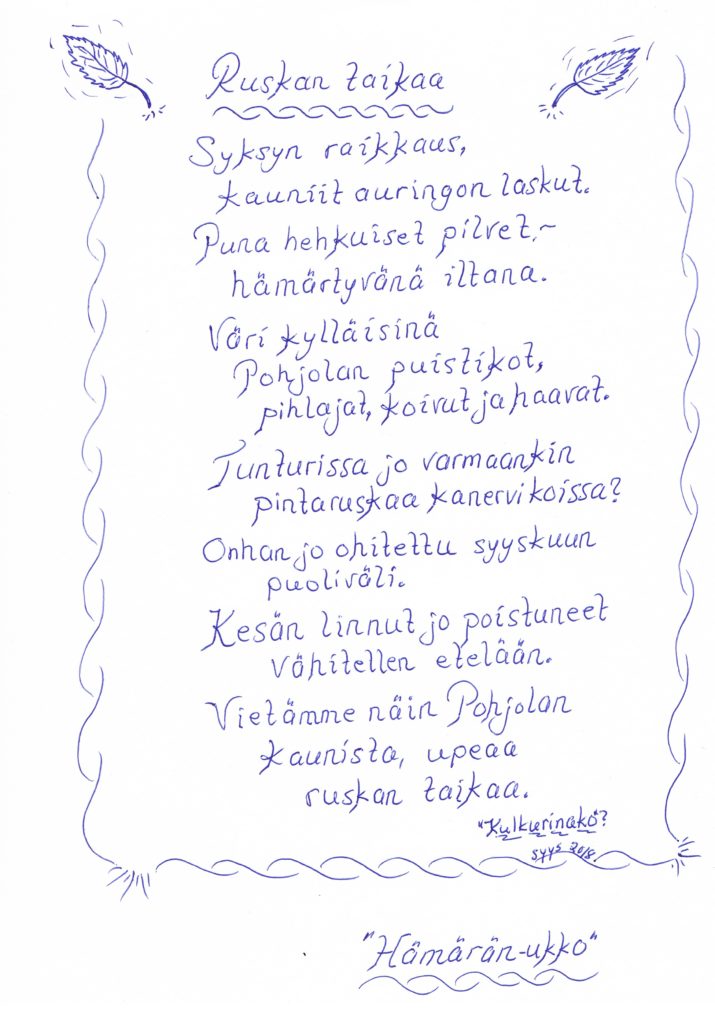 Ruskan taikaa
Syksyn raikkaus,
kauniit auringon laskut.
Puna hehkuiset pilvet,~
hämärtyvänä iltana.
Väri kylläisinä
Pohjolan puistikot,
pihlajat, koivut ja haavat.
Tunturissa jo varmaankin
pintaruskaa kanervikoissa?
Onhan jo ohitettu syyskuun
puoliväli.
Kesän linnut jo poistuneet
vähitellen etelään.
Vietämme näin Pohjolan
kaunista, upeaa
ruskan taikaa.
"Kulkurinako"?
syys 2018.
"Hämärän-ukko"